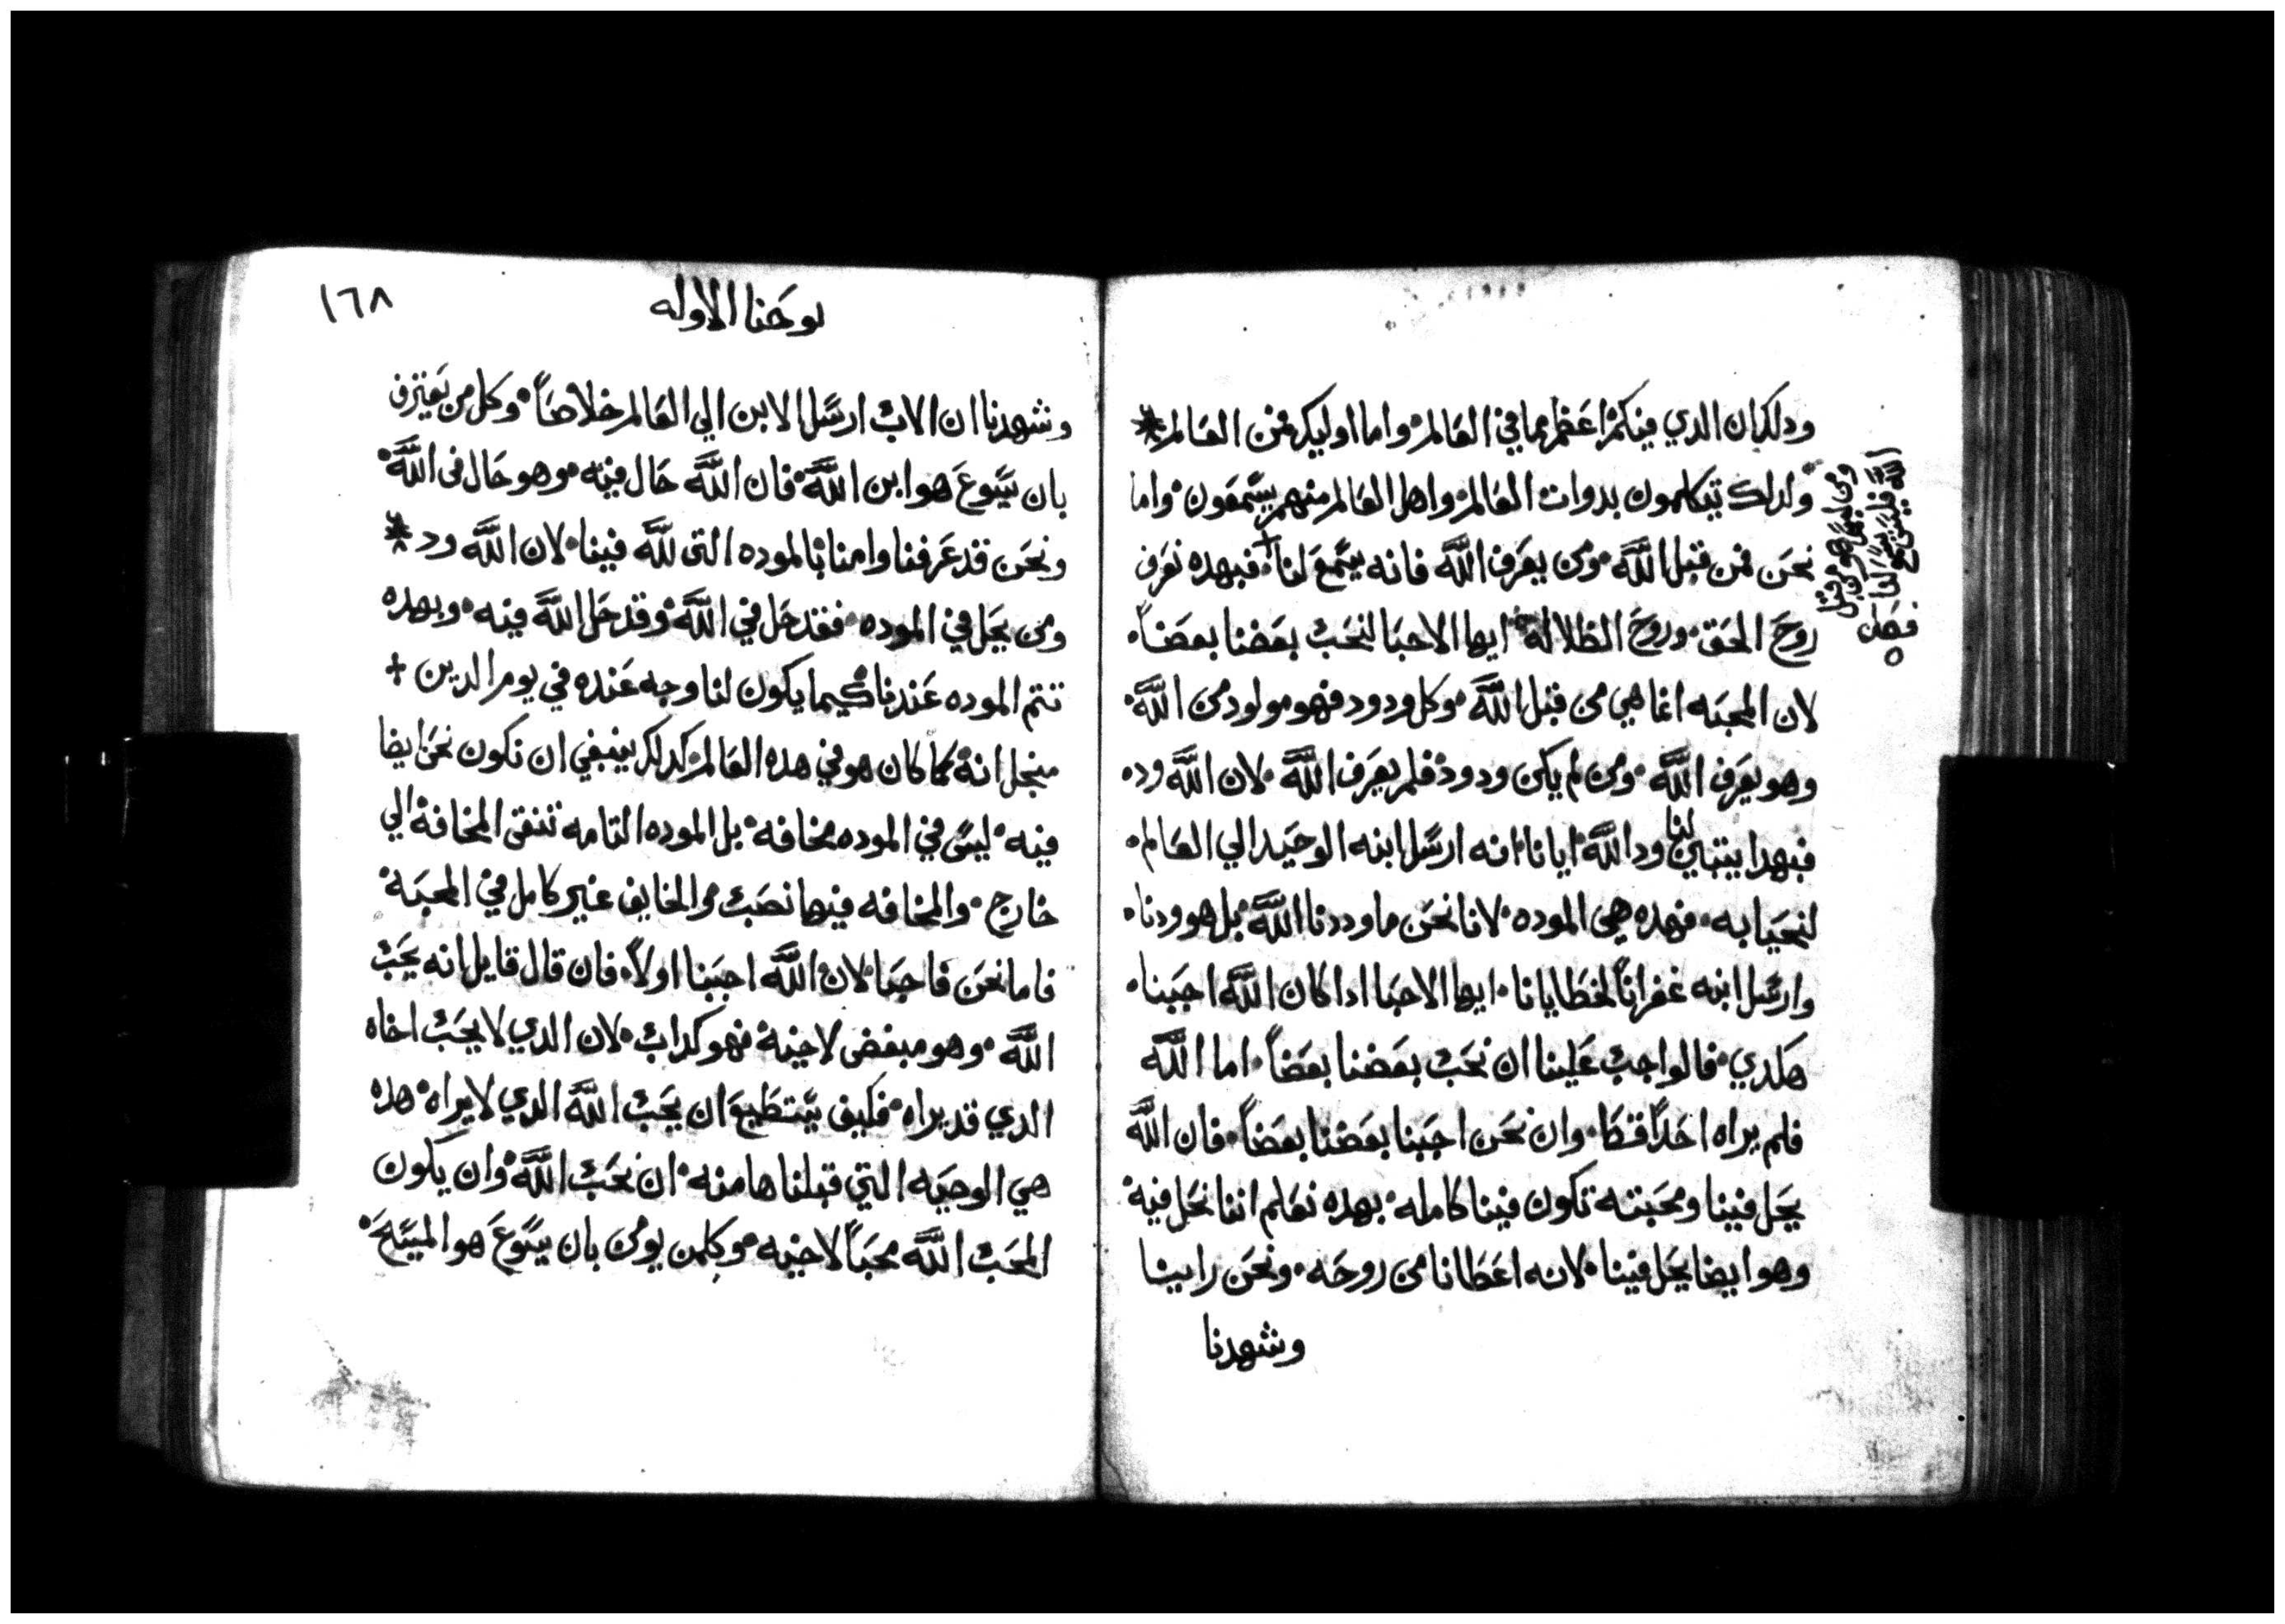 ودلك ان الدي فيكم اعظم مما في العالم واما اوليك فمن العالم
ولدلك يتكلمون بدوات العالم واهل العالم منهم يسمعون واما
نحن فمن قبل الله ومن يعرف الله فانه يسمع لنا فبهده نعرف
ومن ليس هو من قبل
الله فليس يسمع لنا
فصل
روح الحق وروح الظلالة ايها الاحبا لنحب بعضنا بعضاً
لان المحبه انما هي من قبل الله وكل ودود فهو مولود من الله
وهو يعرف الله ومن لم يكن ودود فلم يعرف الله لان الله وده
فبهدا يتبين لنا ود الله ايانا انه ارسل ابنه الوحيد الي العالم
لنحيا به فهده هي الموده لانا نحن ما وددنا الله بل هو ودنا
وارسل ابنه غفراناً لخطايانا ايها الاحبا ادا كان الله احبنا
هكدي فالواجب علينا ان نحب بعضنا بعضاً اما الله
فلم يراه احداً قط وان نحن احببنا بعضنا بعضاً فان الله
يحل فينا ومحبته تكون فينا كامله بهده نعلم اننا نحل فيه
وهو ايضا يحل فينا لانه اعطانا من روحه ونحن راينا
وشهدنا
يوحنا الاوله
١٦٨
وشهدنا ان الاب ارسل الابن الي العالم خلاصاً وكل من يعترف
بان يسوع هو ابن الله فان الله حال فيه وهو حال في الله
ونحن قد عرفنا وامنا بالموده التي لله فينا لان الله ود
ومن يحل في الموده فقد حل في الله وقد حل الله فيه وبهده
تتم الموده عندنا كيما يكون لنا وجه عنده في يوم الدين
منجل انه كما كان هو في هده العالم كدلك ينبغي ان نكون نحن ايضا
فيه ليس في الموده مخافه بل الموده التامه تنفي المخافة الي
خارج والمخافه فيها نصب والخايف غير كامل في المحبة
فاما نحن فاحبا لان الله احبنا اولاً فان قال قايل انه يحب
الله وهو مبغض لاخيه فهو كداب لان الدي لا يحب اخاه
الدي قد يراه فكيف يستطيع ان يحب الله الدي لا يراه هده
هي الوصيه التي قبلناها منه ان نحب الله وان يكون
المحب الله محباً لاخيه وكلمن يومن بان يسوع هو المسيح